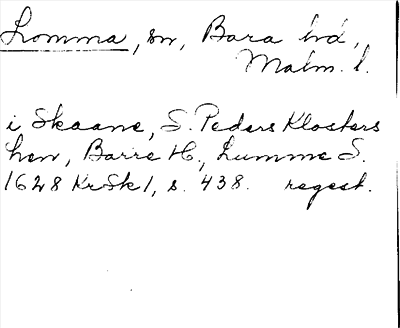 Lomma, sn, Bara hd,
Malm. l.
i Skaane, S. Peders Klosters
len, Barre H., Lumme S.
1628 KrSk 1, s. 438. regest.